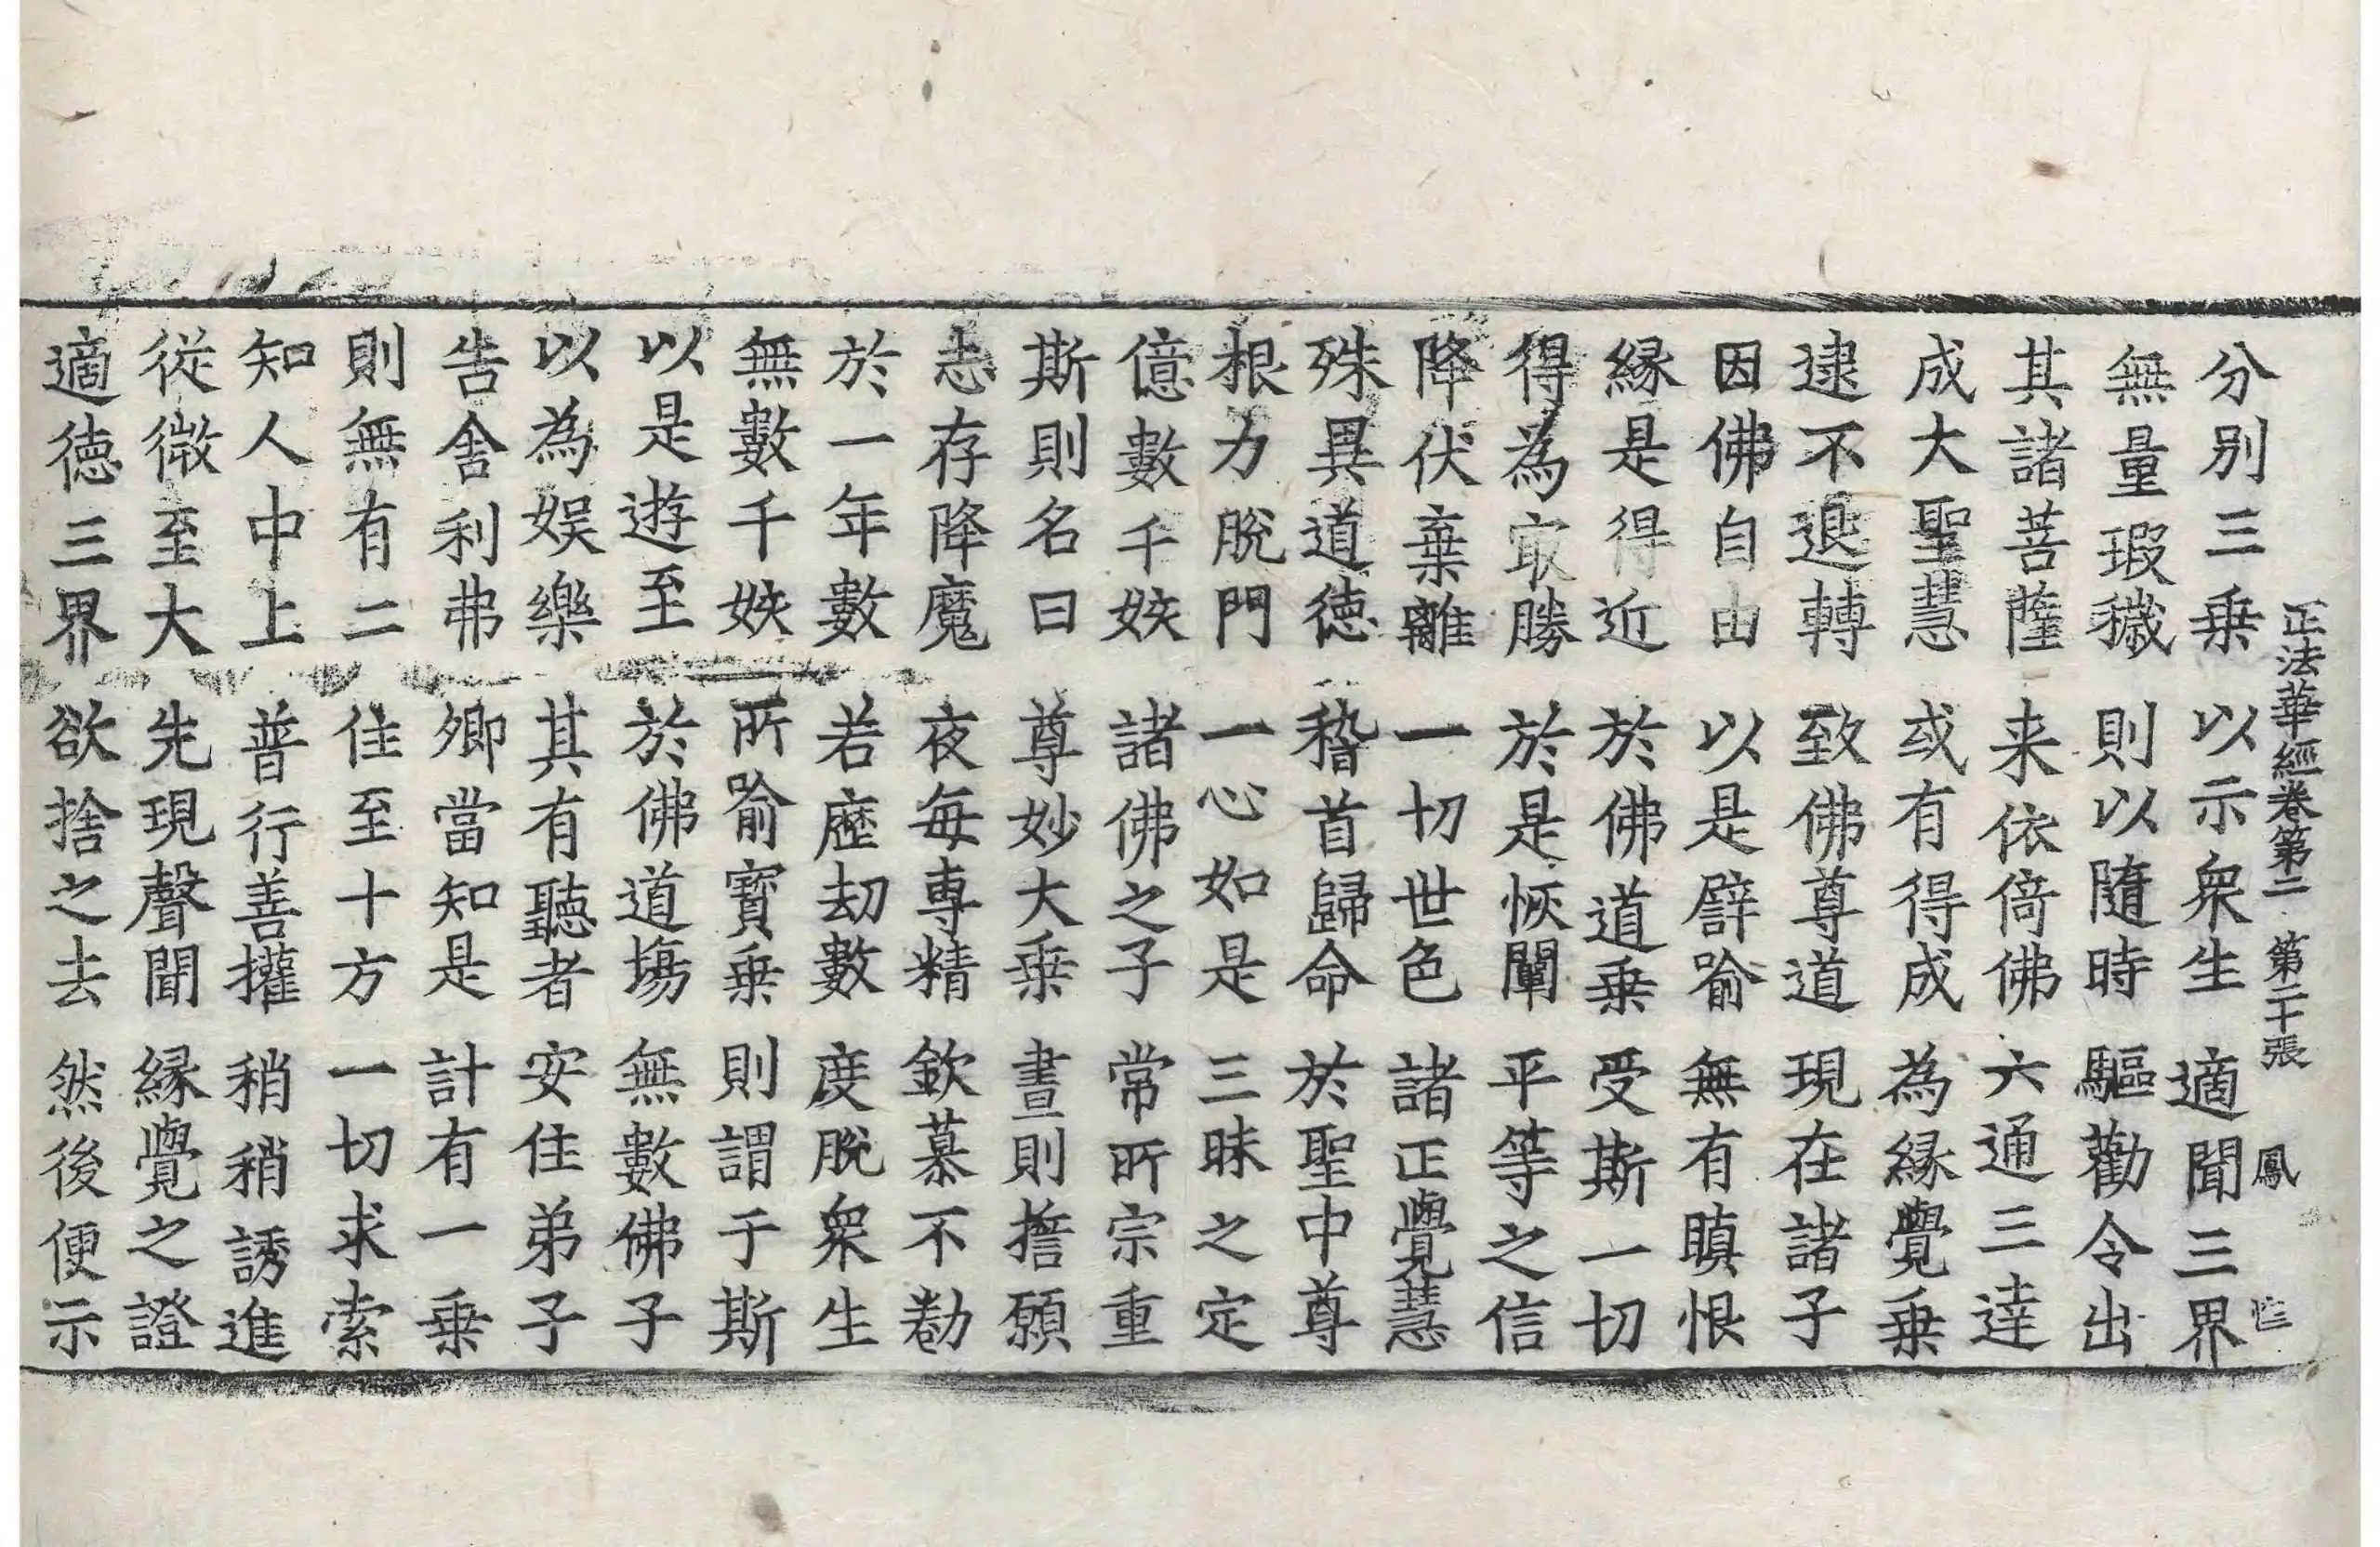 正法華經卷第二 第二十張 鳳
分別三乗 以示衆生 適聞三界
無量瑕穢 則以隨時 驅勸令出
其諸菩薩 来依倚佛 六通三達
成大聖慧 或有得成 為縁覺乗
逮不退轉 致佛尊道 現在諸子
因佛自由 以是譬喻 無有瞋恨
縁是得近 於佛道乗 受斯一切
得為㝡勝 於是恢闡 平等之信
降伏棄離 一切世色 諸正覺慧
殊異道徳 稽首歸命 於聖中尊
根力脫門 一心如是 三昧之定
億數千姟 諸佛之子 常所宗重
斯則名曰 尊妙大乗 晝則擔願
志存降魔 夜每專精 欽慕不勌
於一年數 若歷劫數 度脫衆生
無數千姟 所喻寳乗 則謂于斯
以是遊至 於佛道場 無數佛子
以為娯樂 其有聽者 安住弟子
告舎利弗 卿當知是 計有一乗
則無有二 住至十方 一切求索
知人中上 普行善權 稍稍誘進
従微至大 先現聲聞 縁覺之證
適徳三界 欲捨之去 然後便示